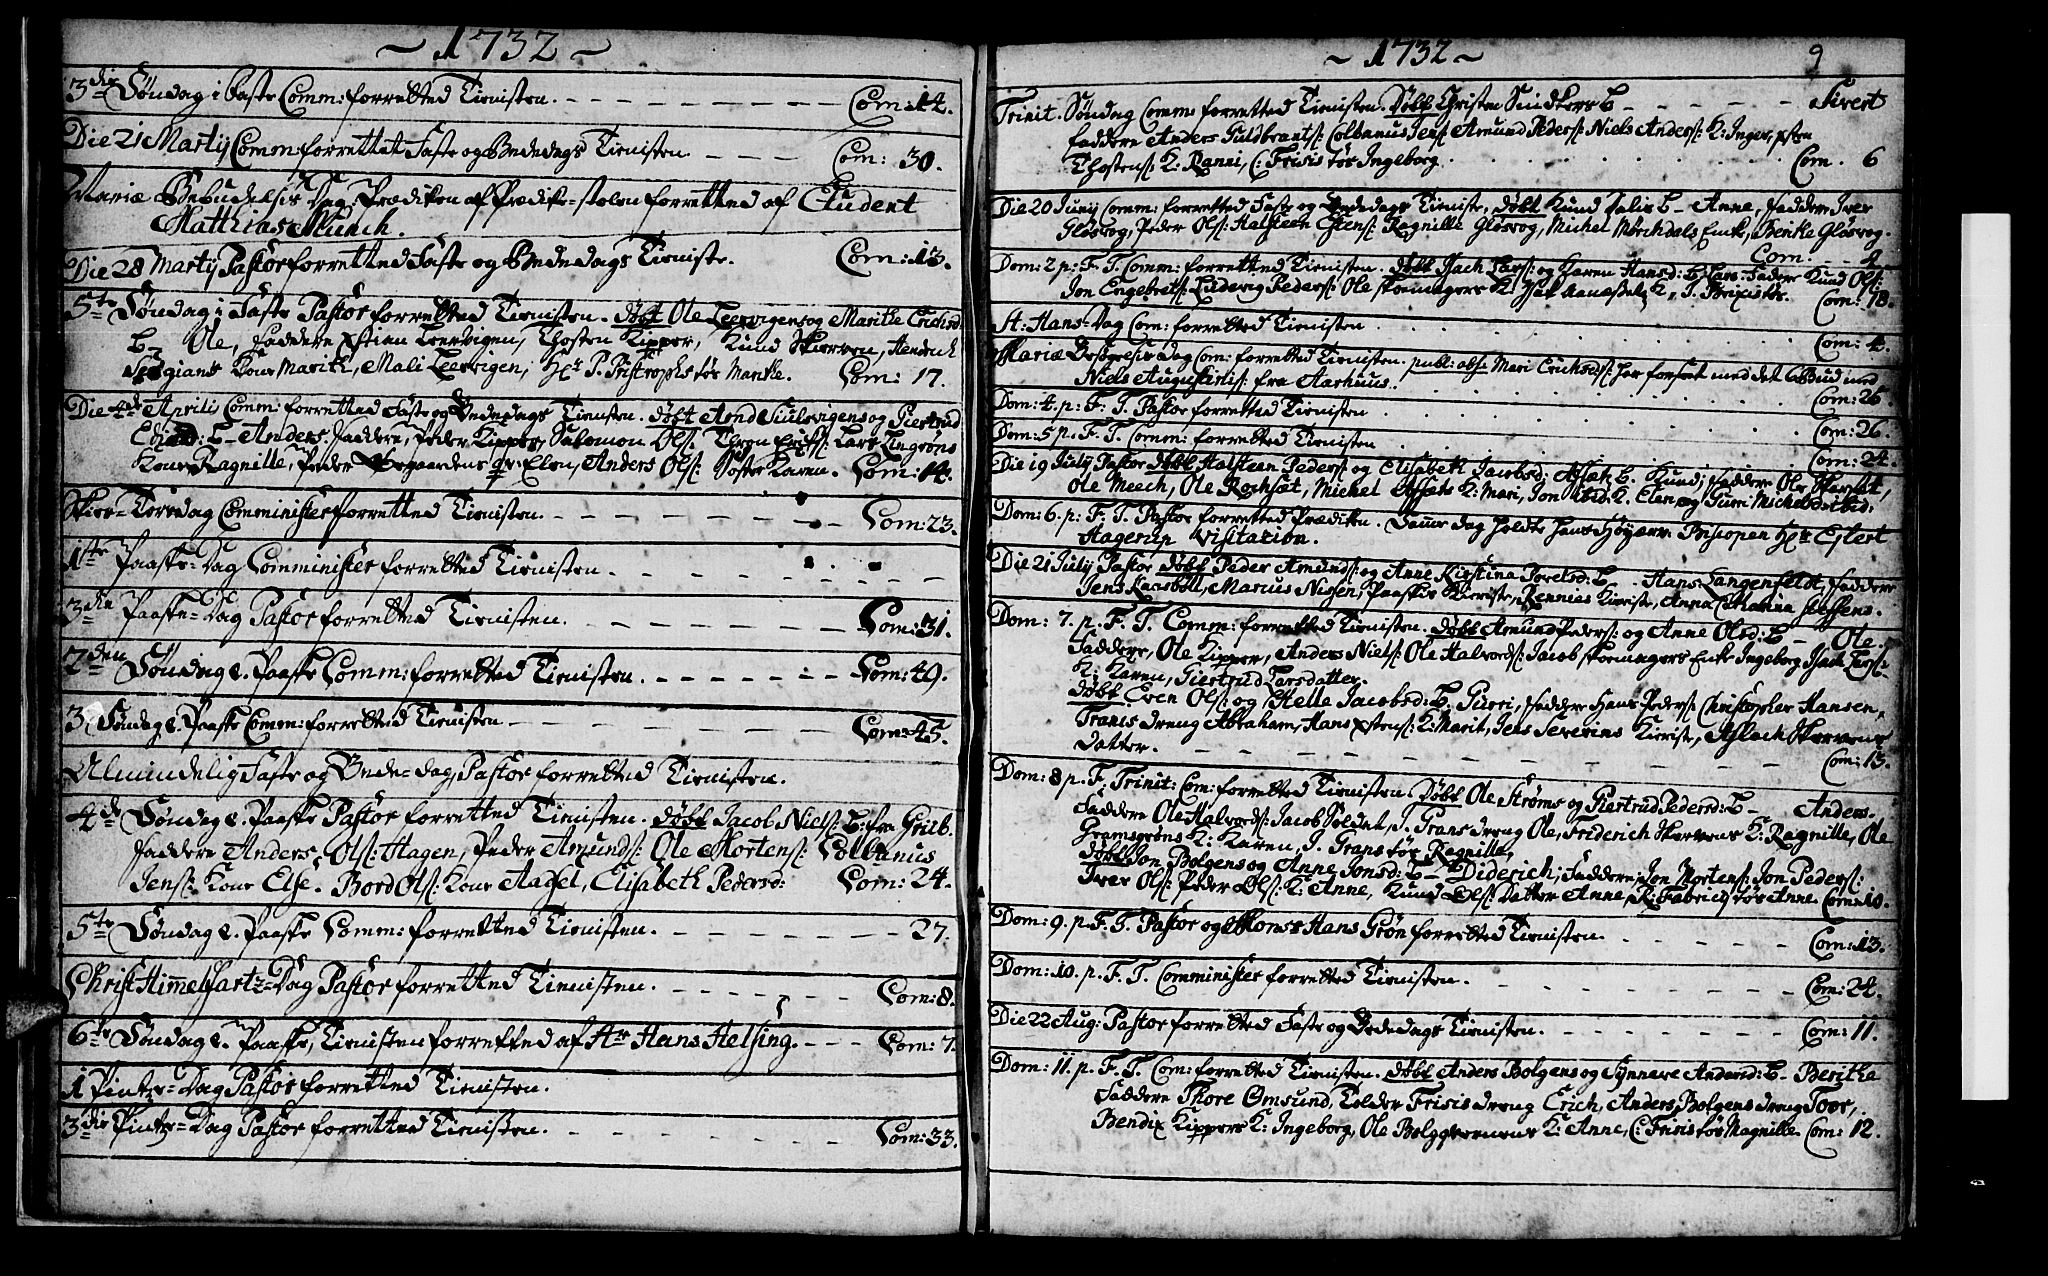 ~ 1732 ~
3die Söndag i Faste Comm: forretted Tienisten. Com: 14.
Die 21 Martij Comm: forrettet Faste og Bededags Tienisten. Com: 30.
Mariæ Bebudelsis Dag, Prædiken af Prædike-stolen forretted af Student
Matthias Munch.
Die 28 Martij Pastor forretted Faste og Bededags Tieniste. Com: 13.
5te Söndag i Faste Pastor forretted Tienisten. döbt Ole Leervigens og Maritte Erichsd:
B- Ole, faddere Leervigen, Thosten Kipper, Knud Skierven, Hendrich
Kone Marith, Mali Leervigen, Hr P. tös Mantte. Com: 17.
Die 4de Aprili Comm: forretted Faste og Bededags Tienisten. döbt Arnd og Giertrud
B- Anders. Faddere, Peder Kipper, Salomon Ols: Thron Erichs: Lars
Kone Ragnille, Peder Elen, Anders Ols: Söster Karen. Com: 14.
Skier-Torsdag Comminister forretted Tienisten. Com: 23.
1ste Paaske-Dag Comminister forretted Tienisten.
3die Paaske-Dag Pastor forretted Tienisten. Com: 31.
2den Söndag e. Paaske Comm: forretted Tienisten. Com: 49.
3 Söndag e. Paaske Comm: forretted Tienisten Com: 45.
Almindelig Faste og Bede-dag, Pastor forretted Tienisten.
4de Söndag e. Paaske Pastor forretted Tienisten. döbt Jacob Niels: B: fra Grilb.
Faddere Anders Ols: Hagen, Peder Amunds: Ole Mortens: Colbanus
Jens: Kone Else. Bord Ols: Kone Aassel, Elisabeth Pedersd: Com: 24.
5te Söndag e. Paaske Comm: forretted Tienisten. 27.
Christ Himmelfartz-Dag Pastor forretted Tienisten. Com: 8.
6te Söndag e. Paaske, Tienisten forretted af Hr Hans Helsing. Com: 7.
1 Pintze-Dag Pastor forretted Tienisten.
3die Pintze-Dag Pastor forretted Tienisten. Com: 33.
~ 1732 ~ 9
Trinit. Söndag Comm: forretted Tienisten. Döbt Christen B- Sivert
faddere Anders Guldbrants: Colbanus Jens: Amund Peders: Niels Anders: K: Inger,
Thostens: K: Ranni, C: Frisis tös Ingeborg. Com. 6
Die 20 Junij Comm: forretted Faste og Bededags Tieniste, döbt Knud B- Anne, Faddere Iver
Glösvog, Peder Ols: Halsteen Estens: Ragnille Glösvog, Michel Mörchdals Enke, Berithe Glösvog.
Com. 4
Dom: 2 p: F. T. Comm: forretted Tienisten. döbt Isach Lars: og Karen Hansd: B- Lars. Faddere Knud Ols:
Jon Engebrets: Ludevig Peders: Ole skomagers K: K, tös. Com: 18.
St: Hans-Dag Com: forretted Tienisten.
Com: 4.
Mariæ Besögelsis Dag Com: forretted Tienisten. publ: abs: Mari Erichsd: har forseet med det 6 Bud med
Niels Augustins: fra Aarhuus. Com: 26.
Dom: 4. p: F: T. Pastor forretted Tienisten
Com: 26.
Dom: 5 p. F. T. Comm: forretted Tienisten
Com: 24.
Die 19 July Pastor döbt Halsteen Peders: og Elisabeth Jacobsd: B. Knud; faddere Ole
Ole Meech, Ole Rochsæt, Michel K: Mari, Jon ibid: K. Elen og Guru Michelsd: ibid:
Dom: 6. p: F. T. Pastor forretted Prædiken. Samme dag holdte hans Höyærv. Biscopen Hr Eylert
Hagerup Visitation.
Die 21 July Pastor döbt Peder Amunds: og Anne Kirstina B- Hans Langenfeldt, faddere
Jens Raasböll, Marcus Nissen, Kieriste, Kieriste, Anna Catharina Steffens.
Dom: 7. p. F. T. Comm: forretted Tienisten. döbt Amund Peders: og Anne Olsd: B- Ole.
Faddere, Ole Kipper, Anders Niels: Ole Halvords: Jacob skomagers Enke Ingeborg, Isach Lars:
K: Karen, Giertrud Larsdatter.
döbt Even Ols: og Helle Jacobsd: B. Gurri, faddere Hans Peders: Christopher Hansen,
dreng Abraham, Hans K: Marit, Jens Severins Kieriste, Aslach Skiervens
Datter. Com: 15.
Dom: 8 p. F. Trinit: Com: forretted Tienisten. Döbt Ole Ströms og Giertrud Pedersd: B- Anders.
Faddere Ole Halvords: Jacob Soldat, J. Grans dreng Ole, Friderich Skiervens K: Ragnille, Ole
K: Karen, J. Grans tös Ragnille,
döbt Jon Bolgens og Anne Jonsd: B- Diderich; faddere, Jon Mortens: Jon Peders:
Iver Ols: Peder Ols: K: Anne, Knud Ols: Datter Anne, R: Fabricij tös Anne. Com: 10.
Dom: 9. p. F. T. Pastor og Monsr Hans Grön forretted Tienisten. Com: 13.
Dom: 10. p. F. T. Comminister forretted Tienisten. Com: 24.
Die 22 Aug: Pastor forretted Faste og Bededags Tienisten. Com: 11.
Dom: 11. p. F. T. Com: forretted Tienisten. döbt Anders Bolgens og Synneve Andersd: B- Berithe
Faddere Thore Omsund, Tolder Frisis dreng Erich, Anders Bolgens dreng Tore,
Bendix Kippers K: Ingeborg, Ole K: Anne, C: Frisis tös Magnille. Com: 12.